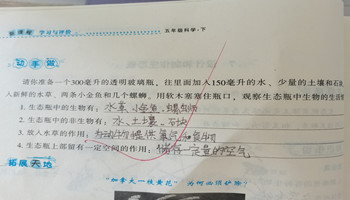 新课程 学习与评价
五年级科学·下
动手做
请你准备一个300毫升的透明玻璃瓶,往里面加入150毫升的水、少量的土壤和石
人新鲜的水草、两条小金鱼和几个螺蛳,用软木塞塞住瓶口,观察生态瓶中的生
1. 生态瓶中的生物有:水草、小金鱼、螺蛳
2. 生态瓶中的非生物有:水、土壤、石块
3. 放入水草的作用:为动物提供氧气和食物
4. 生态瓶上部留有一定空间的作用:储存一定量的空气
拓展天地
"加拿大一枝黄花"为何必须铲除?